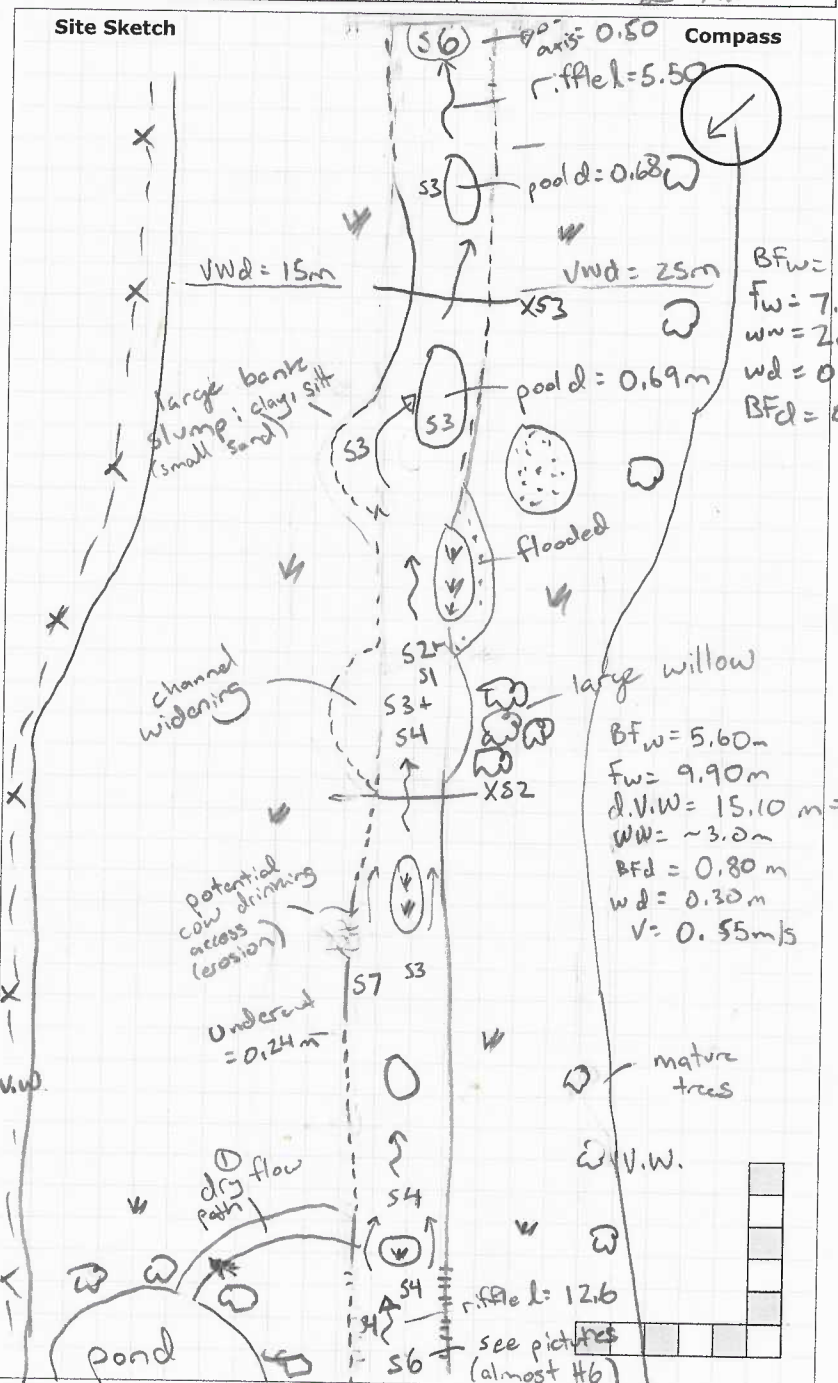 Site Sketch
Compass
S6
axis = 0.50
riffle l = 5.50
S3
pool d = 0.68
VWd = 15m
VWd = 25m
XS3
BFw =
fw = 7.
ww = 2.
wd = 0
BFd =
large bank
slump; clay, silt
(small sand)
S3
pool d = 0.69m
S3
flooded
S2
S1
S3+
S4
channel
widening
large willow
XS2
BFw = 5.60m
Fw = 9.90m
d.V.W = 15.10 m
WW = ~3.0m
BFd = 0.80 m
wd = 0.30 m
V = 0.55m/s
potential
cow drinking
access
(erosion)
S7
S3
Undercut
= 0.24 m
mature
trees
V.W.
V.W.
①
dry flow
path
S4
S4
riffle l = 12.6
S6
see pictures
(almost #6)
pond